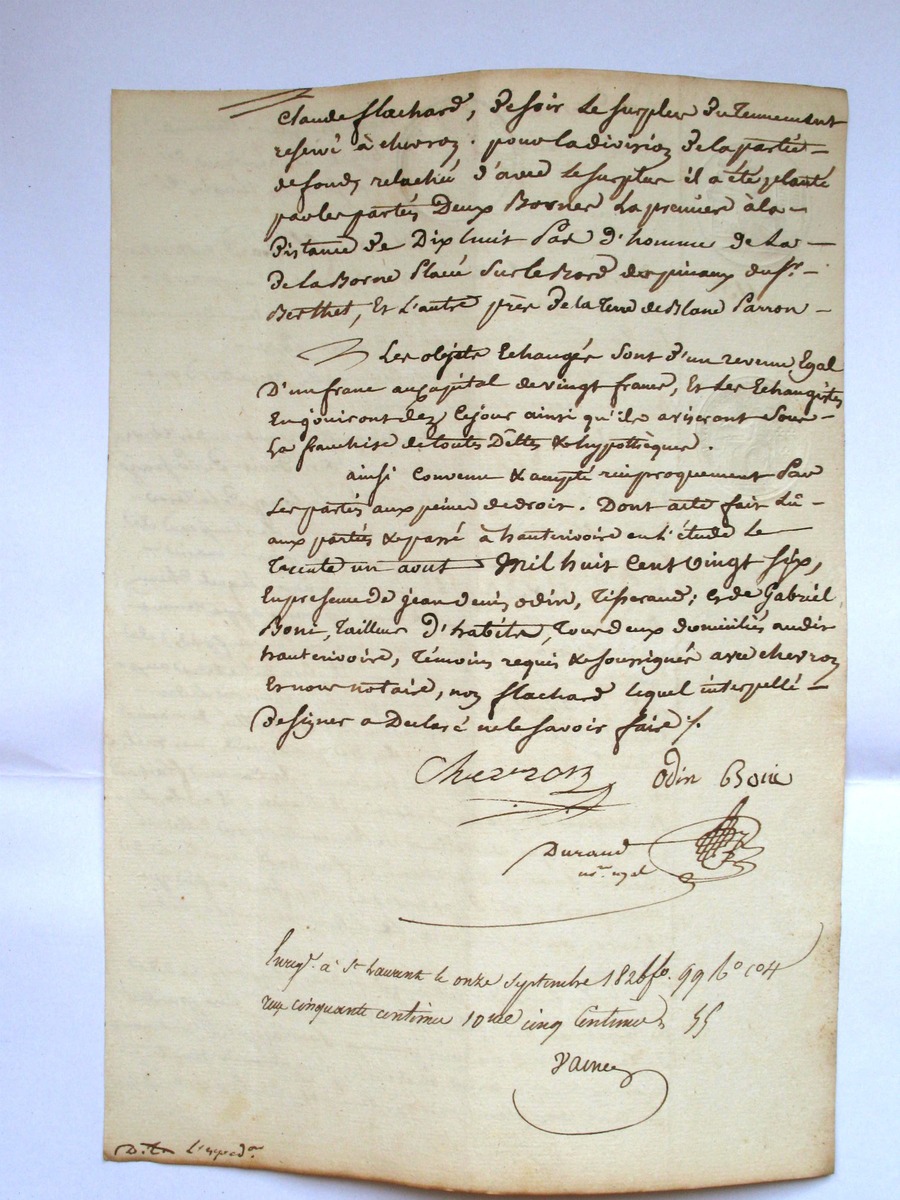 Claude flachard, de soir le surplus du Tennement
reservé à chevron. pour la division de la partie
de fonds relachée d'avec le surplus il a été planté
par les parties Deux Bornes La premiere à la
Distance de Dix huit Pas d'homme de La
de la Borne Placée Sur le Bord des pineaux du Sr.
Berthet, Et L'autre près de la Terre de Blane Parron
Les objets Echangés Sont d'un revenu Egal
D'un franc au Capital de vingt francs, Et Les Echangistes
En jouiront dez ce jour ainsi qu'ils aviseront Sous
La franchise de touts Dêttes & hypothèques.
ainsi Convenu & accepté réciproquement Par
Les parties aux peines de droit. Dont acte fait Lû
aux parties & passé à hauterivoire en L'étude Le
Trente un aout Mil huit Cent vingt Six,
En presence de jean denis odin, Tisserand; & de Gabriel
Boni, Tailleur D'habits, Tous deux domiciliés audit
hauterivoire, Témoins requis & soussignés avec chevron
Et nous notaire, non flachard lequel interpellé
De signer a Declaré ne le savoir faire ./.
Chevron Odin Bonie
Durand
nre. royal
Enregt. à St Laurent le onze Septembre 1826 fo. 99 Vo co 4
reçu cinquante centimes 10me cinq Centimes
D. Le L'exped on.